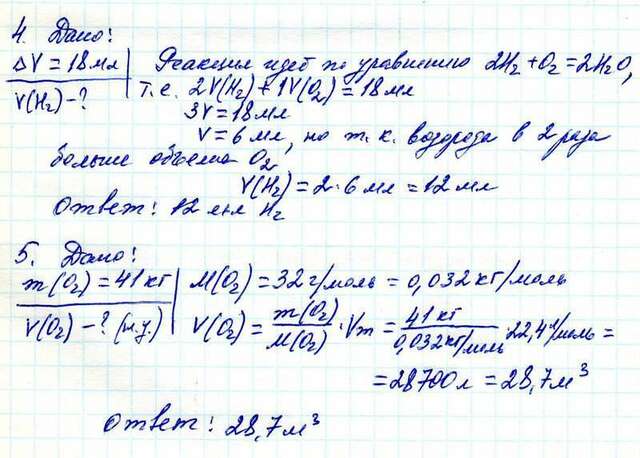 4. Дано:
ΔV = 18 мл | Реакция идет по уравнению 2H₂ + O₂ = 2H₂O,
V(H₂) - ? | т.е. 2V(H₂) + 1V(O₂) = 18 мл
3V = 18 мл
V = 6 мл, но т.к. водорода в 2 раза
больше объема O₂
V(H₂) = 2·6 мл = 12 мл
Ответ: 12 мл H₂
5. Дано:
m(O₂) = 41 кг | M(O₂) = 32 г/моль = 0,032 кг/моль
V(O₂) - ? (н.у.) | V(O₂) = m(O₂)/M(O₂) · Vm = 41 кг/0,032 кг/моль · 22,4 л/моль =
= 28700 л = 28,7 м³
Ответ: 28,7 м³